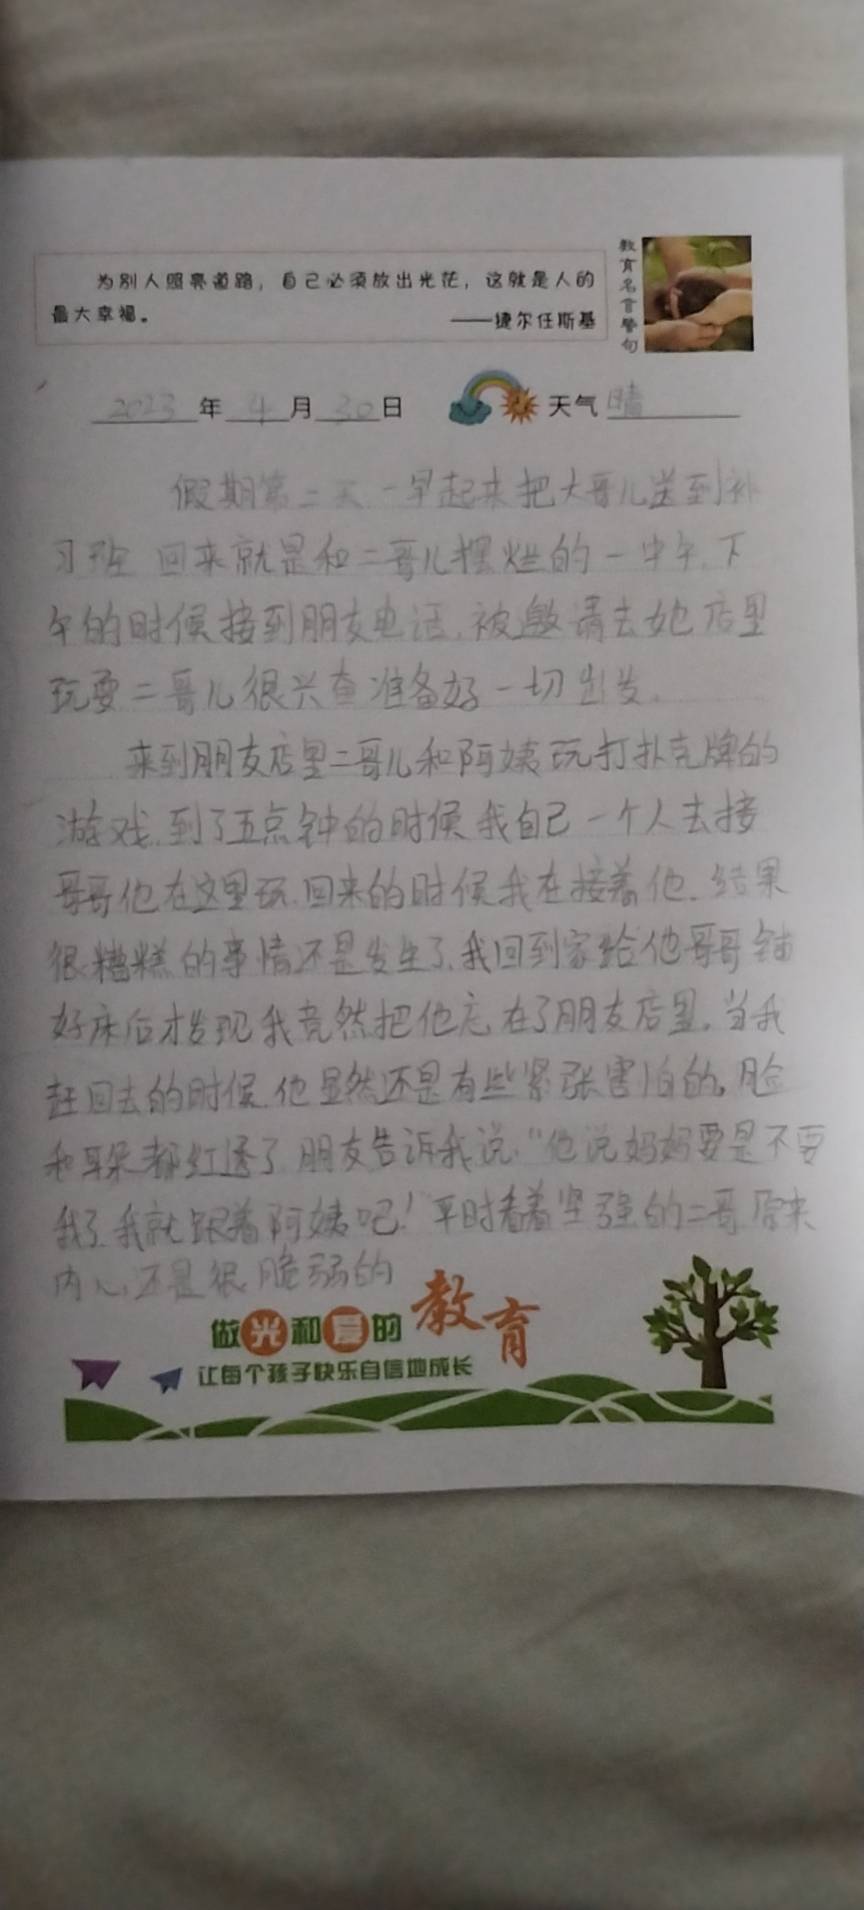 为别人照亮道路，自己必须放出光茫，这就是人的
最大幸福。 ——捷尔任斯基
教育名言警句
2023年4月30日 天气晴
假期第二天一早起来把大哥儿送到补
习班 回来就是和二哥儿摆烂的一中午.下
午的时候接到朋友电话.被邀请去她店里
玩耍二哥儿很兴奋准备好一切出发.
来到朋友店里二哥儿和阿姨玩打扑克牌的
游戏.到了五点钟的时候我自己一个人去接
哥哥他在这里玩.回来的时候我在接着他.结果
很糟糕的事情还是发生了.我回到家给他哥哥铺
好床后才发现我竟然把他忘在了朋友店里.当我
赶回去的时候.他显然还是有些紧张害怕的.脸
和耳朵都红透了 朋友告诉我说."他说妈妈要是不要
我了.我就跟着阿姨吧!"平时看着坚强的二哥.原来
内心还是很脆弱的
做光和爱的教育
让每个孩子快乐自信地成长